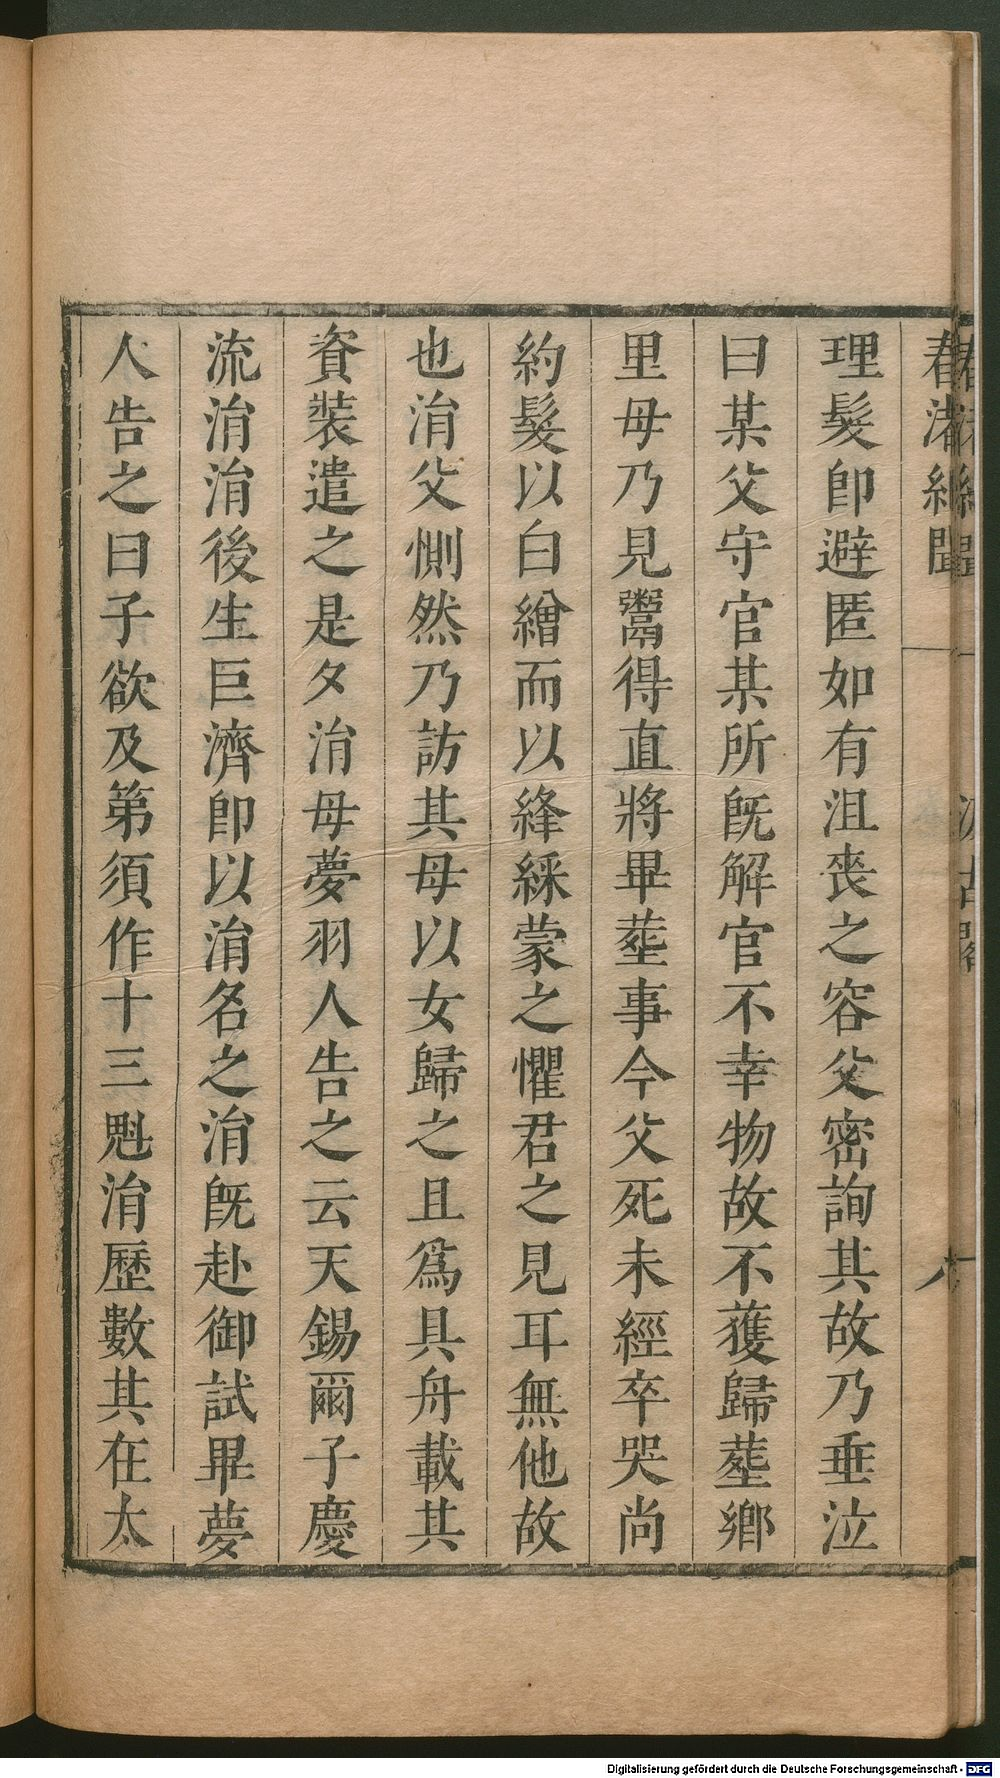 春渚紀聞
理髮卽避匿如有沮喪之容父密詢其故乃垂泣
曰某父守官某所旣解官不幸物故不獲歸塟鄉
里母乃見鬻得直將畢塟事今父死未經卒哭尚
約髮以白繒而以絳綵蒙之懼君之見耳無他故
也淯父惻然乃訪其母以女歸之且爲具舟載其
資裝遣之是夕淯母夢羽人告之云天錫爾子慶
流淯淯後生巨濟卽以淯名之淯旣赴御試畢夢
人告之曰子欲及第須作十三魁淯歷數其在太
Digitalisierung gefördert durch die Deutsche Forschungsgemeinschaft - DFG